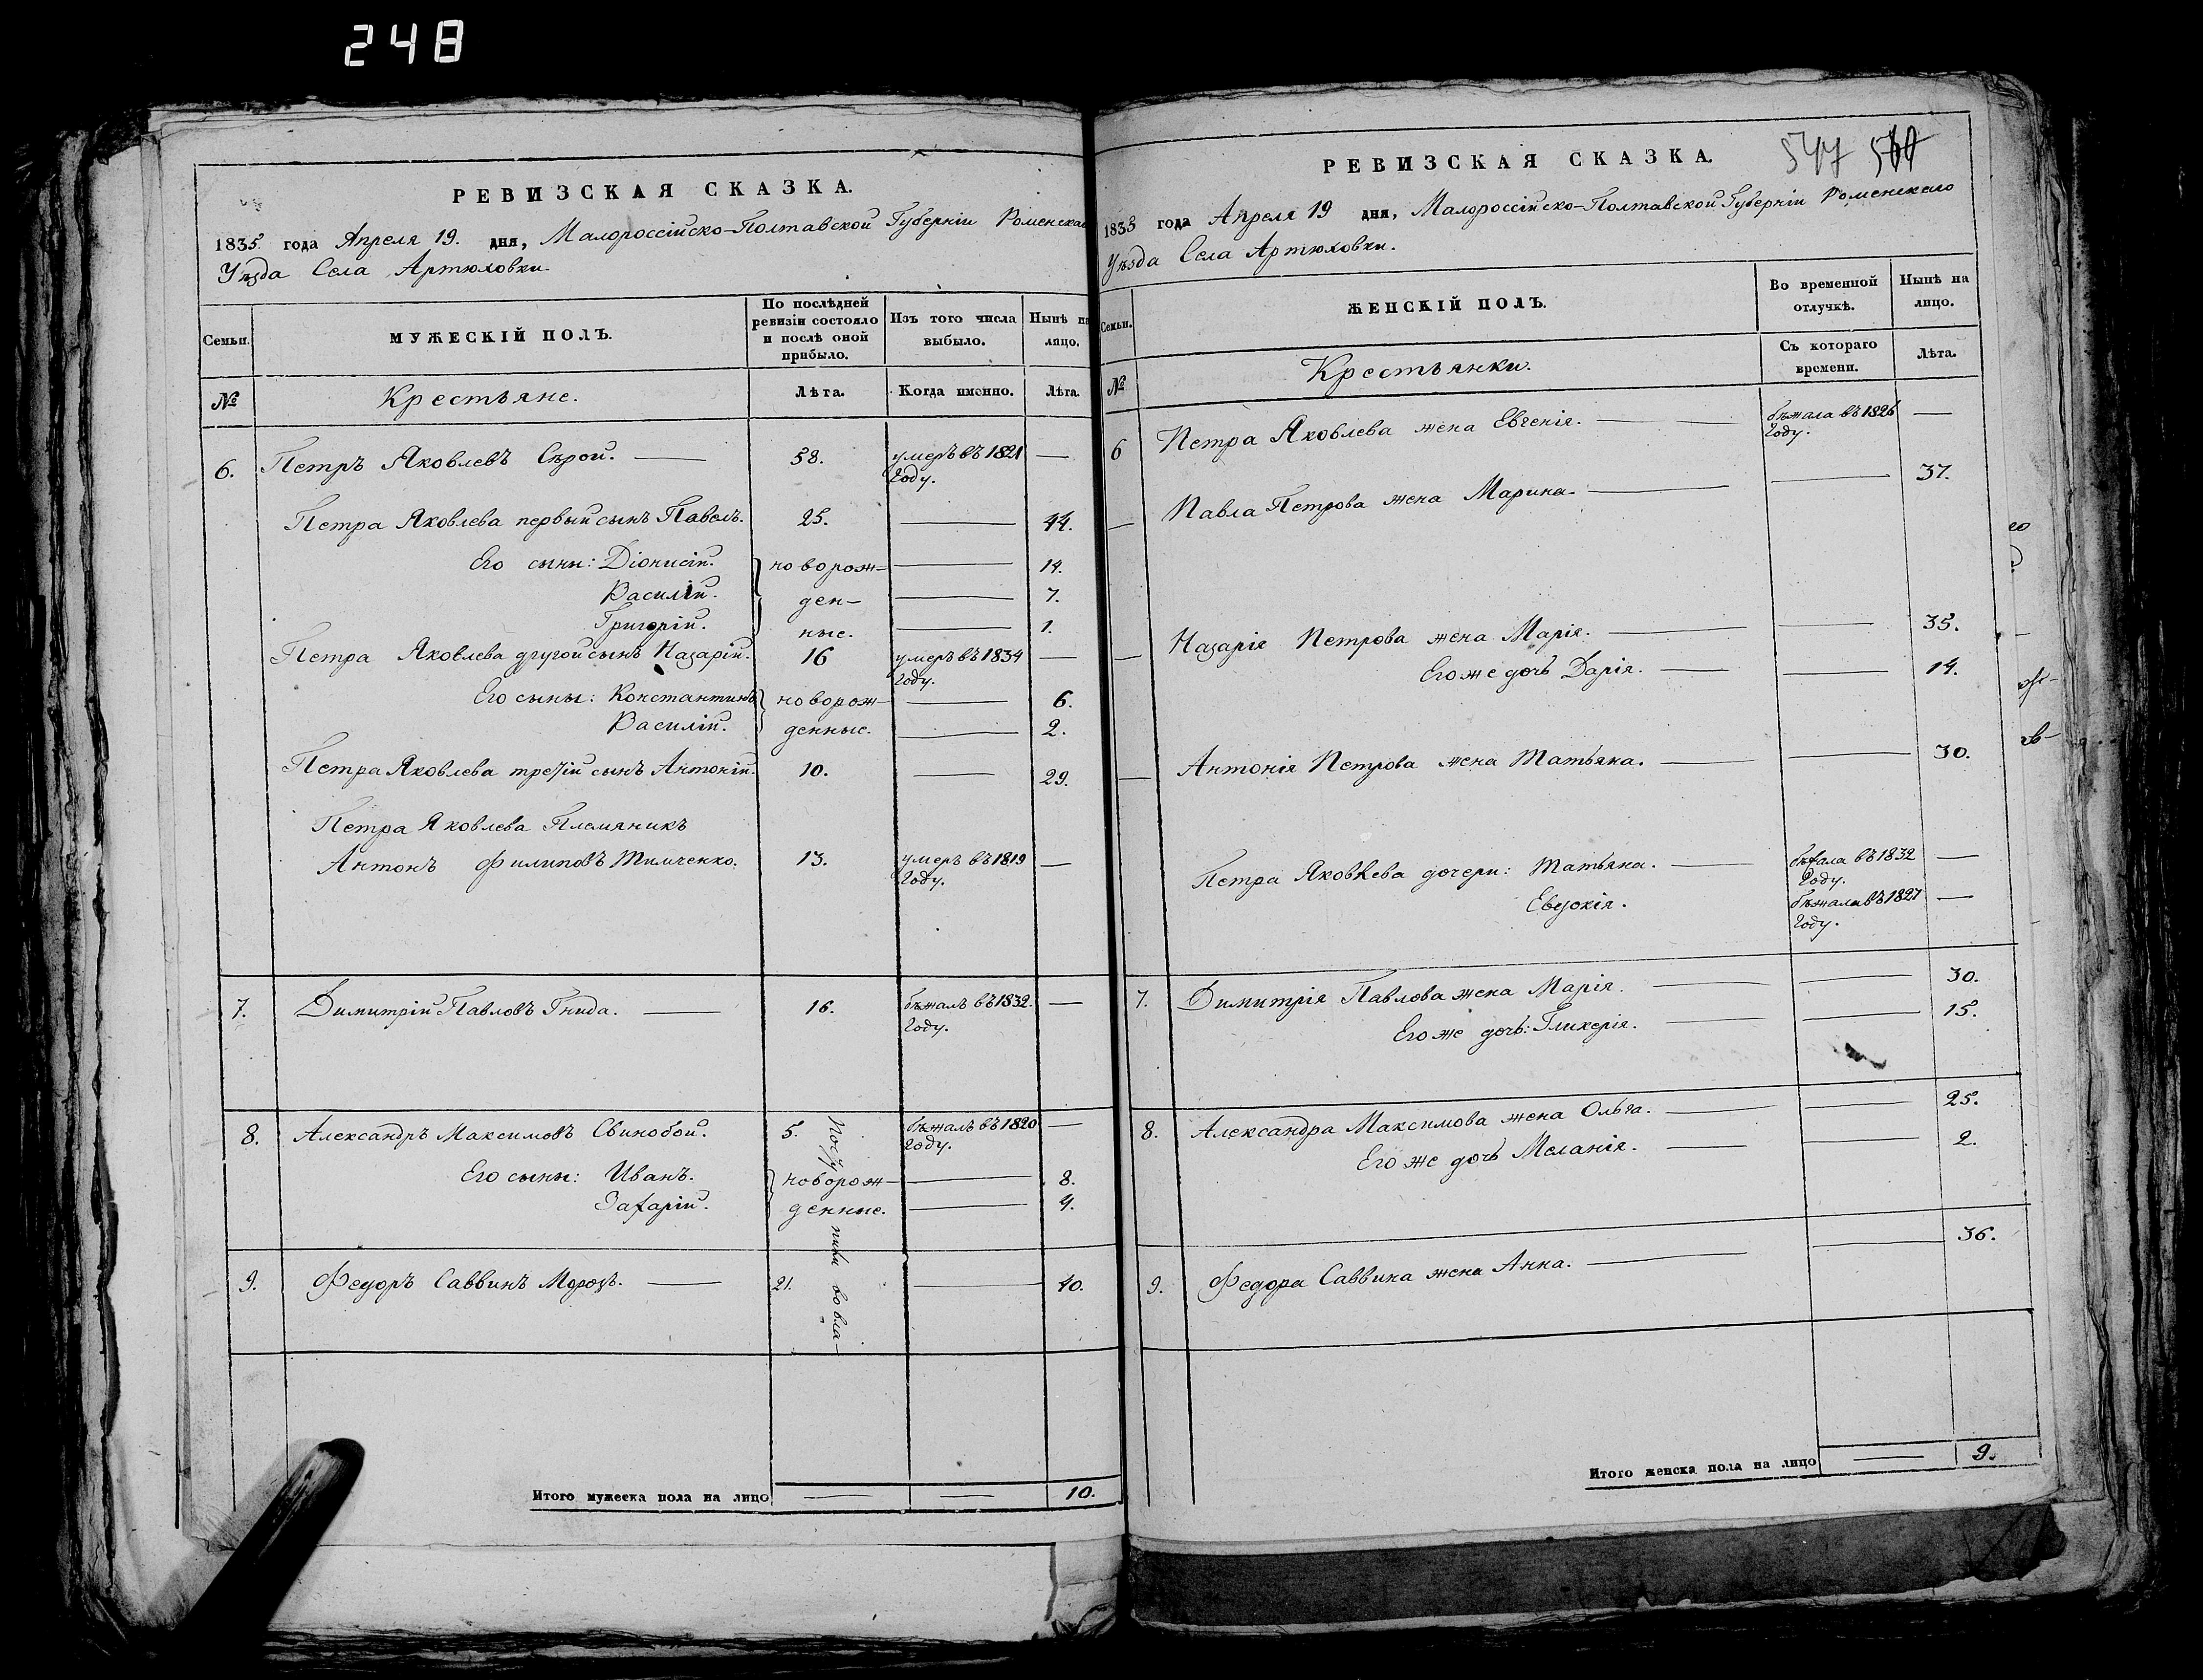 248
РЕВИЗСКАЯ СКАЗКА.
1835 года Апреля 19. дня, Малороссійско-Полтавской Губерніи Роменскаго
Уѣзда Села Артюховки.
Семьи.
МУЖЕСКІЙ ПОЛЪ.
По послѣдней ревизіи состояло и послѣ оной прибыло.
Изъ того числа выбыло.
Нынѣ на лицо.
№
Крестьяне.
Лѣта.
Когда именно.
Лѣта.
6. Петръ Яковлевъ Сѣрой. — 58. умеръ въ 1821 —
Году.
Петра Яковлева первый сынъ Павелъ. 25. — 44.
Его сыны: Діонисій. новорож- — 14.
Василій. ден- — 7.
Григорій. ные. — 1.
Петра Яковлева другой сынъ Назарій. 16 умеръ въ 1834 —
Году.
Его сыны: Константинъ новорож- — 6.
Василій. денные. — 2.
Петра Яковлева третій сынъ Антоній. 10. — 29.
Петра Яковлева Племяникъ
Антонъ Филиповъ Тимченко. 13. умеръ въ 1819 —
Году.
7. Димитрій Павловъ Гнида. — 16. бѣжалъ въ 1832. —
Году.
8. Александръ Максимовъ Свинобой. 5. бѣжалъ въ 1820 —
Году.
Его сыны: Иванъ. новорож- — 8.
Захарій. денные. — 4.
9. Федоръ Саввинъ Морозъ. — 21. — 40.
Посту
пили во вла-
Итого мужеска пола на лицо — — 10.
547 560
РЕВИЗСКАЯ СКАЗКА.
1835 года Апреля 19 дня, Малороссійско-Полтавской Губерніи Роменскаго
Уѣзда Села Артюховки.
Семьи.
ЖЕНСКІЙ ПОЛЪ.
Во временной отлучкѣ.
Нынѣ на лицо.
№
Крестьянки.
Съ котораго времени.
Лѣта.
6 Петра Яковлева жена Евгенія. — бѣжала въ 1826 —
Году.
— Павла Петрова жена Марина. — — 37.
— Назарія Петрова жена Марія. — — 35.
Его же дочь Дарія. — — 14.
— Антонія Петрова жена Татьяна. — — 30.
Петра Яковлева дочери: Татьяна. — бѣжала въ 1832 —
Году.
Евдокія. бѣжала въ 1827 —
Году.
7. Димитрія Павлова жена Марія. — — 30.
Его же дочь: Гликерія. — — 15.
8. Александра Максимова жена Ольга. — — 25.
Его же дочь Меланія. — — 2.
9. Федора Саввина жена Анна. — — 36.
Итого женска пола на лицо — 9.